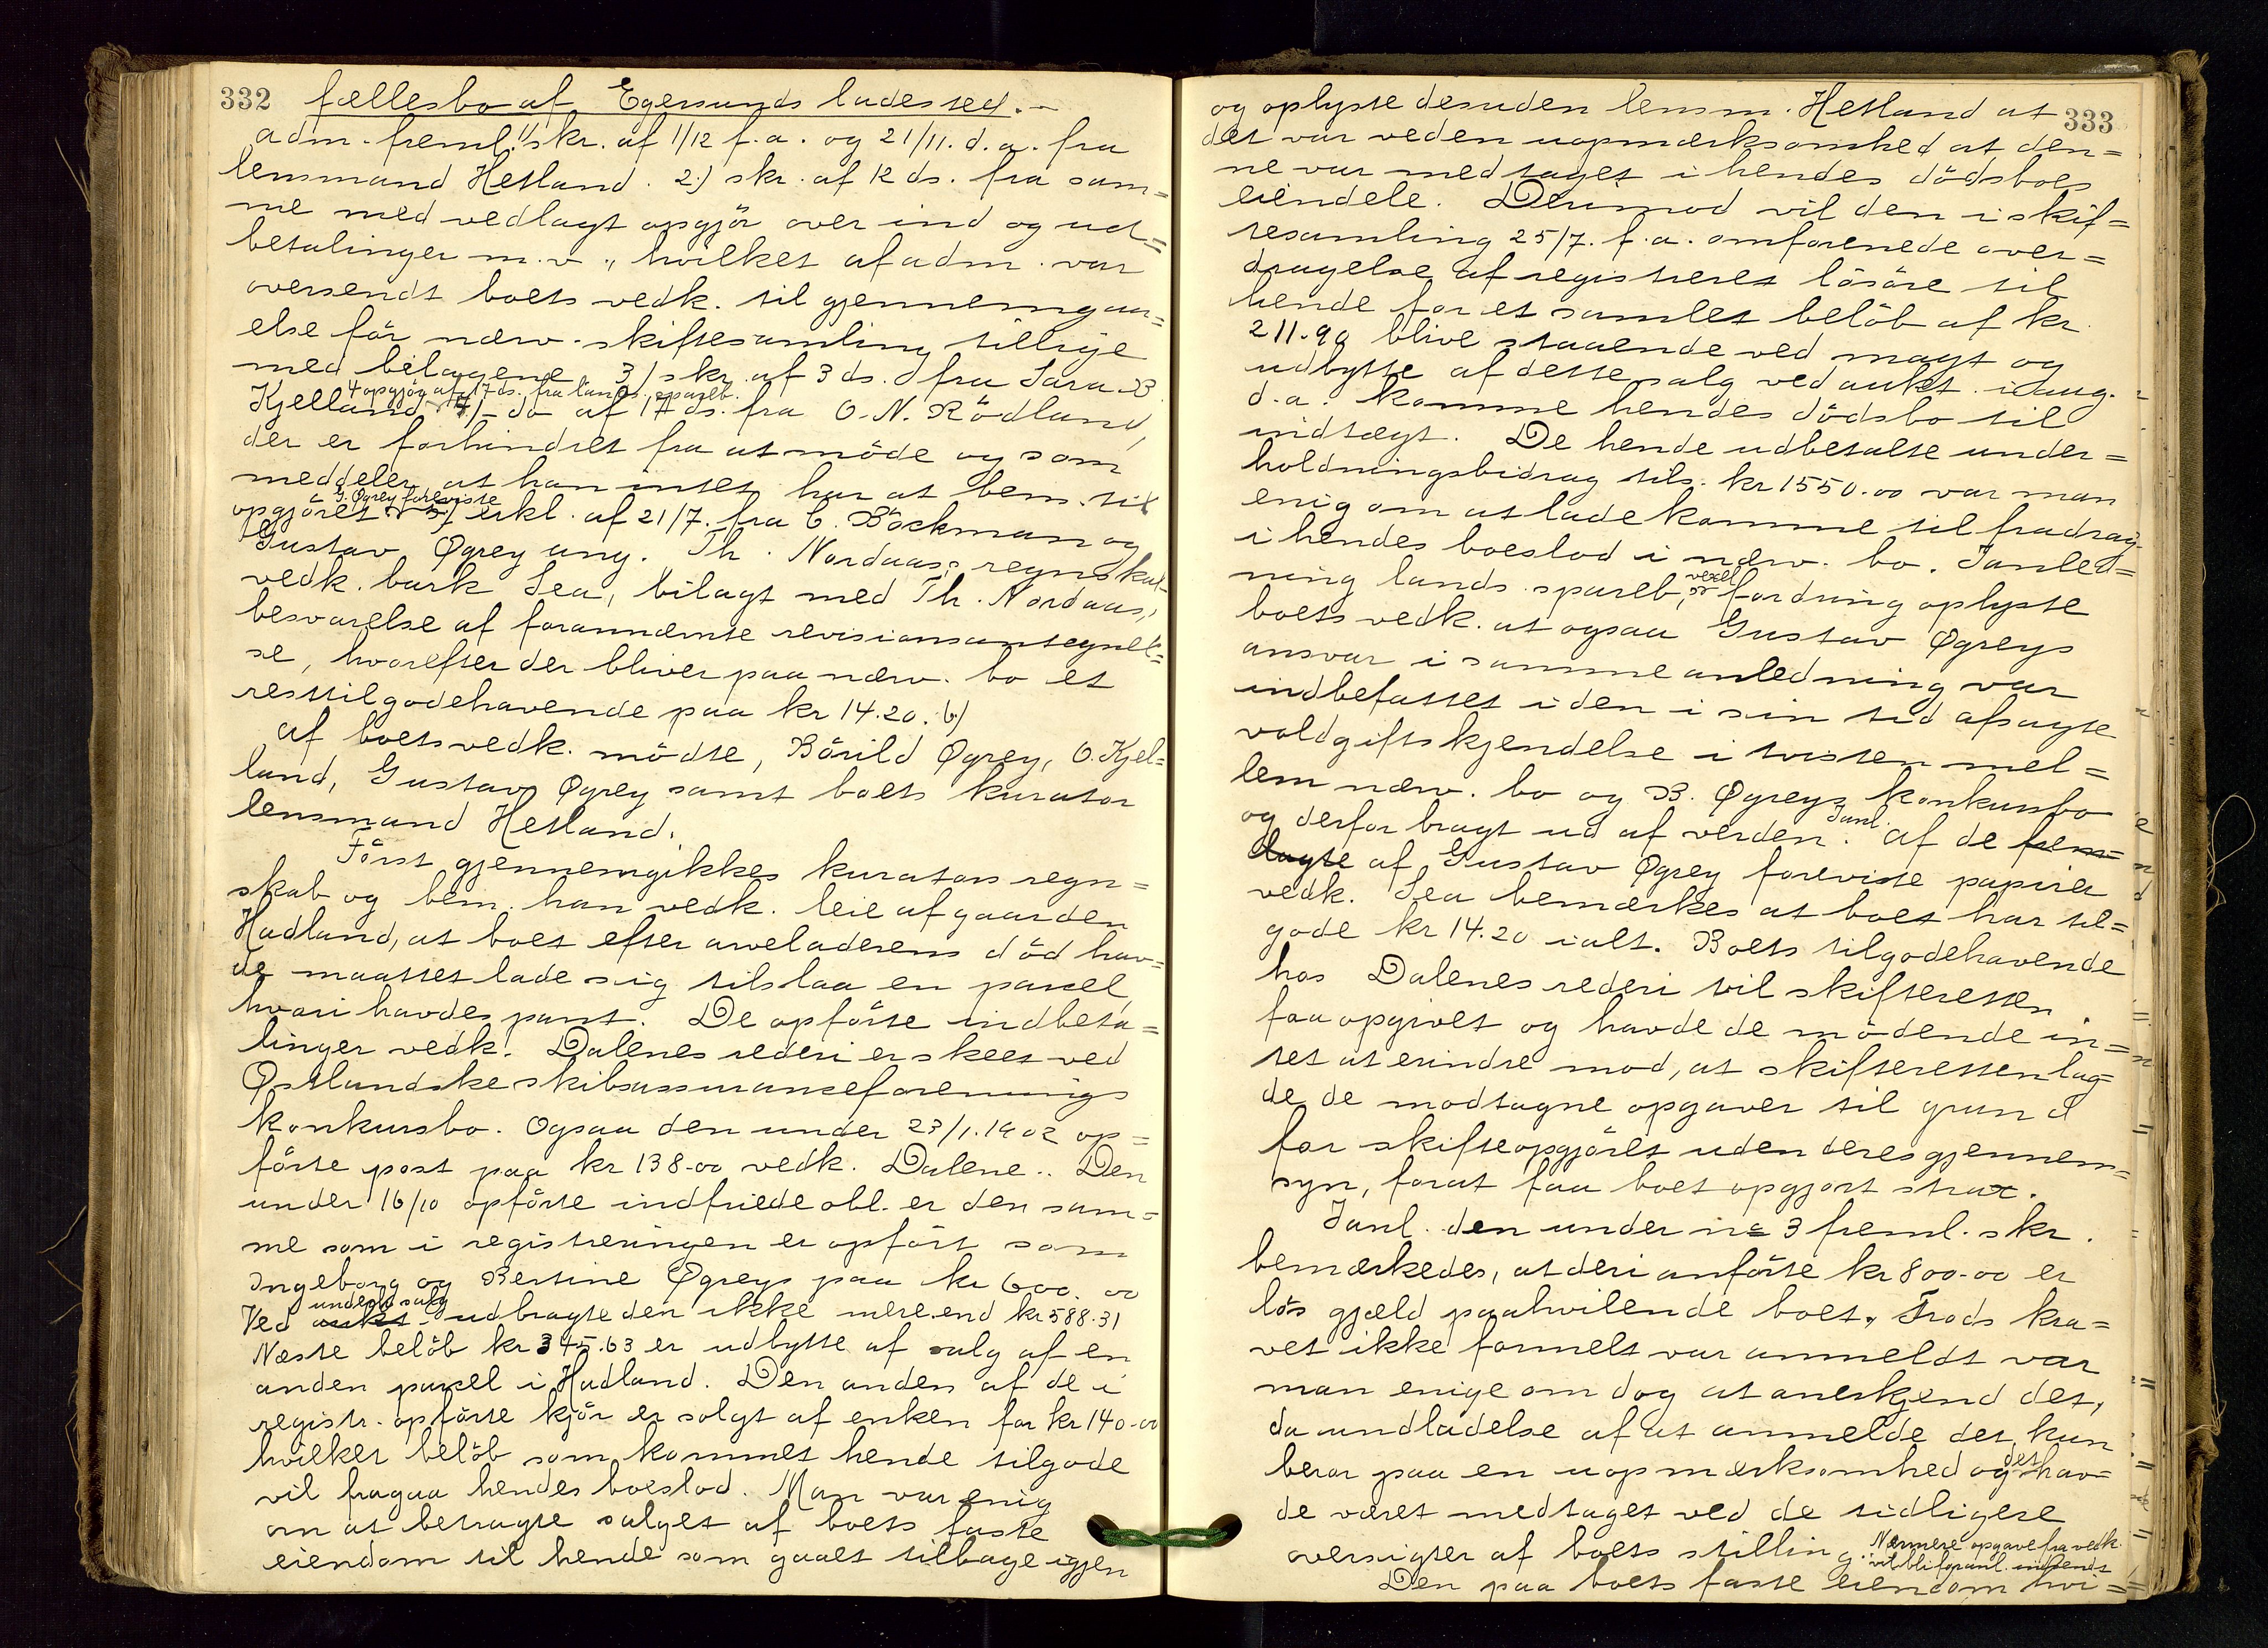 332 fællesbo af Egersunds ladested. -
adm. freml. 1/ skr. af 1/12 f.a. og 21/11. d.a. fra
lensmand Hetland. 2) skr. af 12 ds. fra sam=
me med vedlagt opgjör over ind og ud=
betalinger m.v., hvilket af adm. var
oversendt boets vedk. til gjennemgaa=
else för nærv. skiftesamling tillige
med bilagene 3/ skr. af 3 ds. fra Sara B
4 opgjör af 17 ds. fra lands. spareb.
Kjelland do af 17 ds. fra O. N. Rödland,
der er forhindret fra at möde og som
meddeler at han intet har at bem. til
G. Øgrey foreviste
opgjöret 5/ erkl. af 21/7. fra C. Böckman og
Gustav Øgrey ang. Th. Nordaas, regnskab
vedk. bark Lea, bilagt med Th. Nordaas,
besvarelse af forannævnte revisionsantegnel=
se, hvorefter der bliver paa nærv. bo et
resttilgodehavende paa kr 14.20. 6)
af boets vedk. mödte, Bärild Øgrey, O. Kjel=
land, Gustav Øgrey samt boets kurator
lensmand Hetland.
Först gjennemgikkes kurators regn=
skab og bem. han vedk. leie af gaarden
Hadland, at boet efter arveladerens död hav=
de maattet lade sig tilslaa en parcel,
hvori havdes pant. De opförte indbeta=
linger vedk. Dalenes rederi er skeet ved
Østlandske skibsassuranceforenings
konkursbo. Ogsaa den under 23/1.1902 op=
förte post paa kr 138-00 vedk. Dalene.. Den
under 16/10 opförte indfriede obl. er den sam=
me som i registreringen er opfört som
Ingeborg og Bertine Øgreys paa kr 600.00
underh. salg
Ved aukt. udbragte den ikke mere end kr 588.31
Næste belöb kr 345.63 er udbytte af salg af en
anden parcel i Hadland. Den anden af de i
registr. opförte kjör er solgt af enken for kr 140-00
hvilket belöb som kommet hende tilgode
vil fragaa hendes boeslod. Man var enig
om at betragte salget af boets faste
eiendom til hende som gaaet tilbage igjen
og oplyste desuden lensm. Hetland at 333
det var ved en uopmærksomhed at den=
ne var medtaget i hendes dödsboes
eiendele. Derimod vil den i skif=
tesamling 25/7. f.a. omforenede over=
dragelse af registreret lösöre til
hende for et samlet belöb af kr.
211.90 blive staaende ved magt og
udbytte af dette salg ved aukt. i aug.
d.a. komme hendes dödsbo til
indtægt. De hende udbetalte under=
holdningsbidrag tils. kr 1550.00 var man
enig om at lade komme til fradrag
i hendes boeslod i nærv. bo. I anled=
vexel
ning lands. spareb, fordring oplyste
boets vedk. at ogsaa Gustav Øgreys
ansvar i samme anledning var
indbefattet i den i sin tid afsagte
voldgiftskjendelse i tvisten mel=
lem nærv. bo og B. Øgreys konkursbo
I anl.
og derfor bragt ud af verden. af de frem=
lagte af Gustav Øgrey foreviste papirer
vedk. Lea bemærkes at boet har til=
gode kr 14.20 ialt. Boets tilgodehavende
hos Dalenes rederi vil skifteretten
faa opgivet og havde de mödende in=
tet at erindre mod, at skifteretten lag=
de de modtagne opgaver til grund
for skifteopgjöret uden deres gjennem=
syn, forat faa boet opgjort strax.
I anl. den under no 3 freml. skr.
bemærkedes, at deri anförte kr 800-00 er
lös gjæld paahvilende boet. Trods kra=
vet ikke formelt var anmeldt var
man enige om dog at anerkjend det,
da undladelse af at anmelde det kun
det
beror paa en uopmærksomhed og hav=
de været medtaget ved de tidligere
oversigter af boets stilling. Nærmere opgave fra vedk.
vil bli foranl. indsendt
Den paa boets faste eiendom hvi=